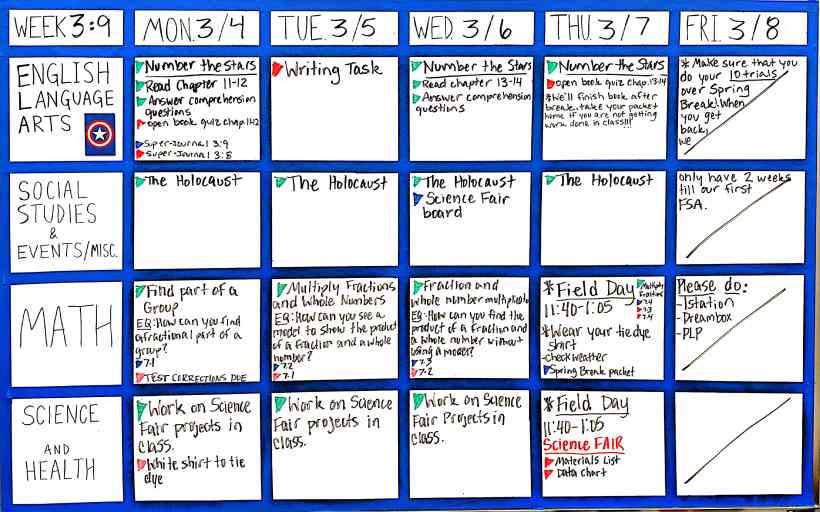 WEEK 3:9
MON. 3/4
TUE. 3/5
WED. 3/6
THU. 3/7
FRI. 3/8
ENGLISH
LANGUAGE
ARTS
Number the Stars
Read Chapter 11-12
Answer comprehension
questions
open book quiz chap. 11-12
Super-Journal 3:9
Super-Journal 3:8
Writing Task
Number the Stars
Read chapter 13-14
Answer comprehension
questions
Number the Stars
open book quiz chap. 13-14
*We'll finish book after
break..take your packet
home if you are not getting
work done in class!!!
* Make sure that you
do your 10 trials
over Spring
Break. When
you get
back,
we
SOCIAL
STUDIES
&
EVENTS/MISC.
The Holocaust
The Holocaust
The Holocaust
Science Fair
board
The Holocaust
only have 2 weeks
till our first
FSA.
MATH
Find part of a
Group
EQ: How can you find
a fractional part of a
group?
7.1
TEST CORRECTIONS DUE
Multiply Fractions
and Whole Numbers
EQ: How can you use a
model to show the product
of a fraction and a whole
number?
7.2
7.1
Fraction and
whole number
EQ: How can you find the
product of a fraction and
a whole number without
using a model?
7.3
7.2
* Field Day
11:40-1:05
*Wear your tie dye
shirt
-check weather
Spring Break packet
Multiply
Fractions
7.4
7.3
7.4
Please do:
-Istation
-Dreambox
-PLP
SCIENCE
AND
HEALTH
Work on Science
Fair projects in
class.
White shirt to tie
dye
Work on Science
Fair projects in
class.
Work on Science
Fair Projects in
class.
* Field Day
11:40-1:05
Science FAIR
Materials List
Data Chart